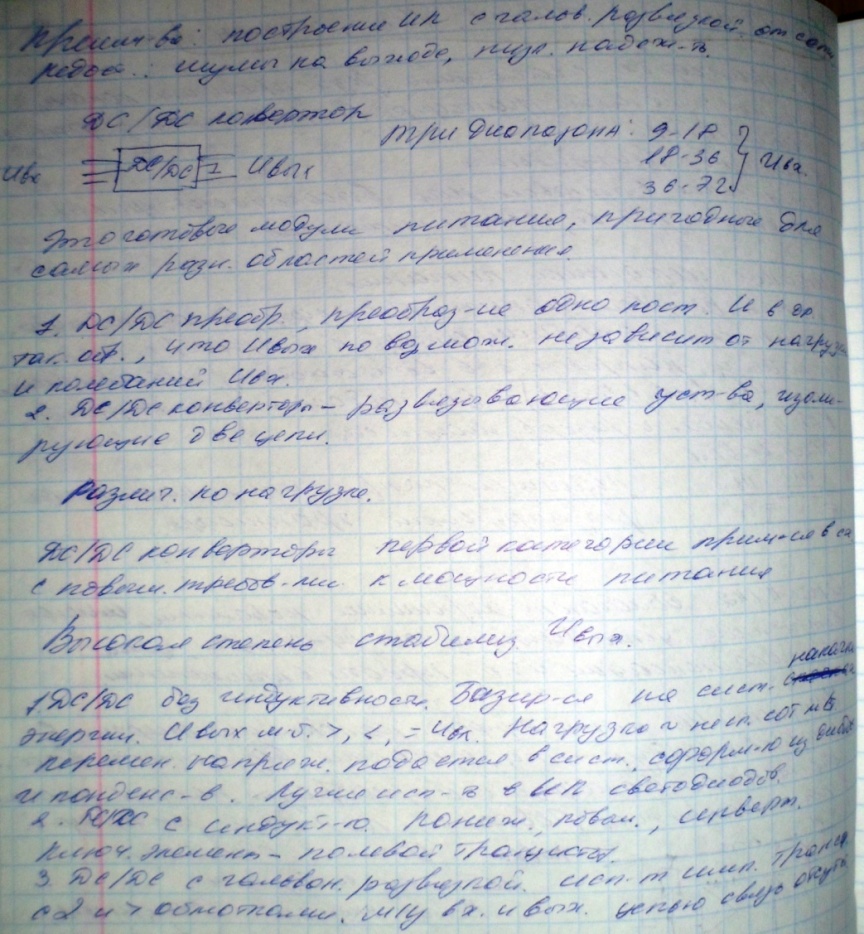 Преим-ва: построение ИП с гальв. развязкой от сети
недос.: шумы на выходе, низк. надеж-ть.
DC/DC конвертор
три диапазона: 9-18
Uвх DC/DC Uвых 18-36 Uвх.
36-72
Это готовые модули питания, пригодные для
самых разн. областей применения
1. DC/DC преобр., преобраз-ие одно пост. U в др.
так. обр., что Uвых по возмож. не зависит от нагрузки
и колебаний Uвх.
2. DC/DC конверторы – развязывающие уст-ва, изоли-
рующие две цепи.
Различ. по нагрузке.
DC/DC конверторы первой категории прим-ся в
с повыш. требов-ми к мощности питания
Высокая степень стабилиз. Uвых.
1 DC/DC без индуктивности. Базир-ся на сист. накачки
энергии. Uвых м.б. >, <, = Uвх. Нагрузка сот мВ
перемен. напряж. подается в сист., сформ-ю из диодов
и конденс-в. Лучше исп-ть в ИП светодиодов.
2. DC/DC с индукт-ю. Пониж., повыш., инверт.
Ключ. элемент – полевой транзистор.
3. DC/DC с гальван. развязкой. исп-т имп. транс
с 2 и > обмотками. м/у вх. и вых. цепью связь отсут